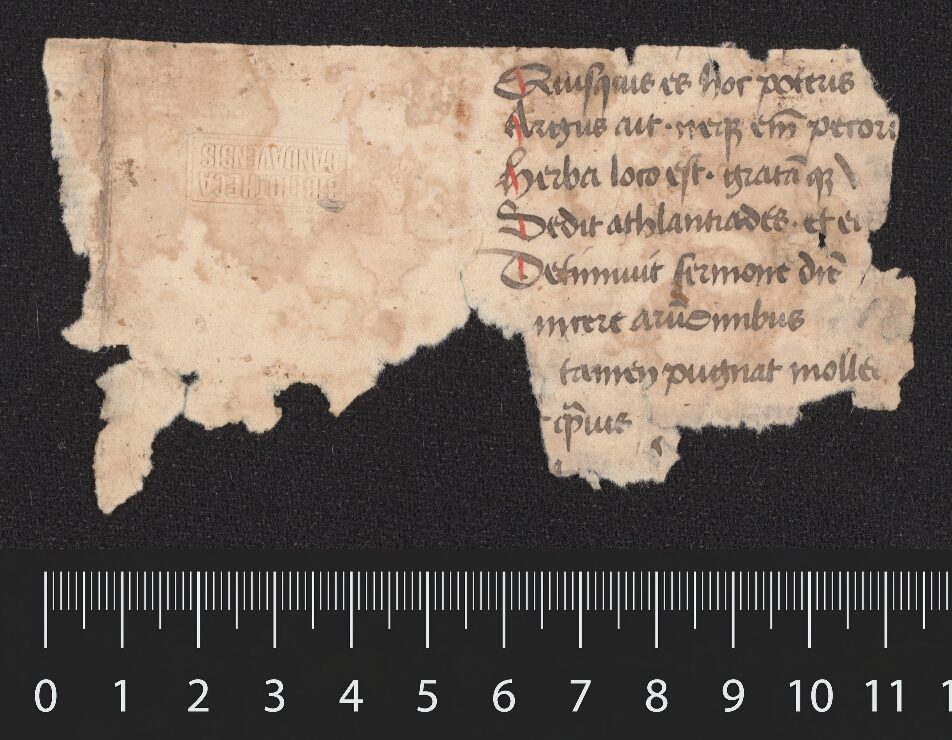 Quisquis es hoc poteras
Argus ait · neqꝫ em̄ pecori
Herba loco est · gratāqꝫ
Sedit athlantiades · et eu
Detinnuit sermone diē
incere arūdinibus
tamen pugnat molle
BIBLIOTHECA
GANDAVENSIS
0 1 2 3 4 5 6 7 8 9 10 11 1